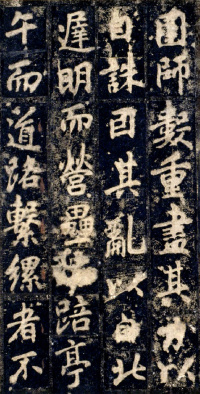 圍師數重盡其力以
自誅因其亂以自北
遲明而營壘踣亭
午而道路繫縲者不